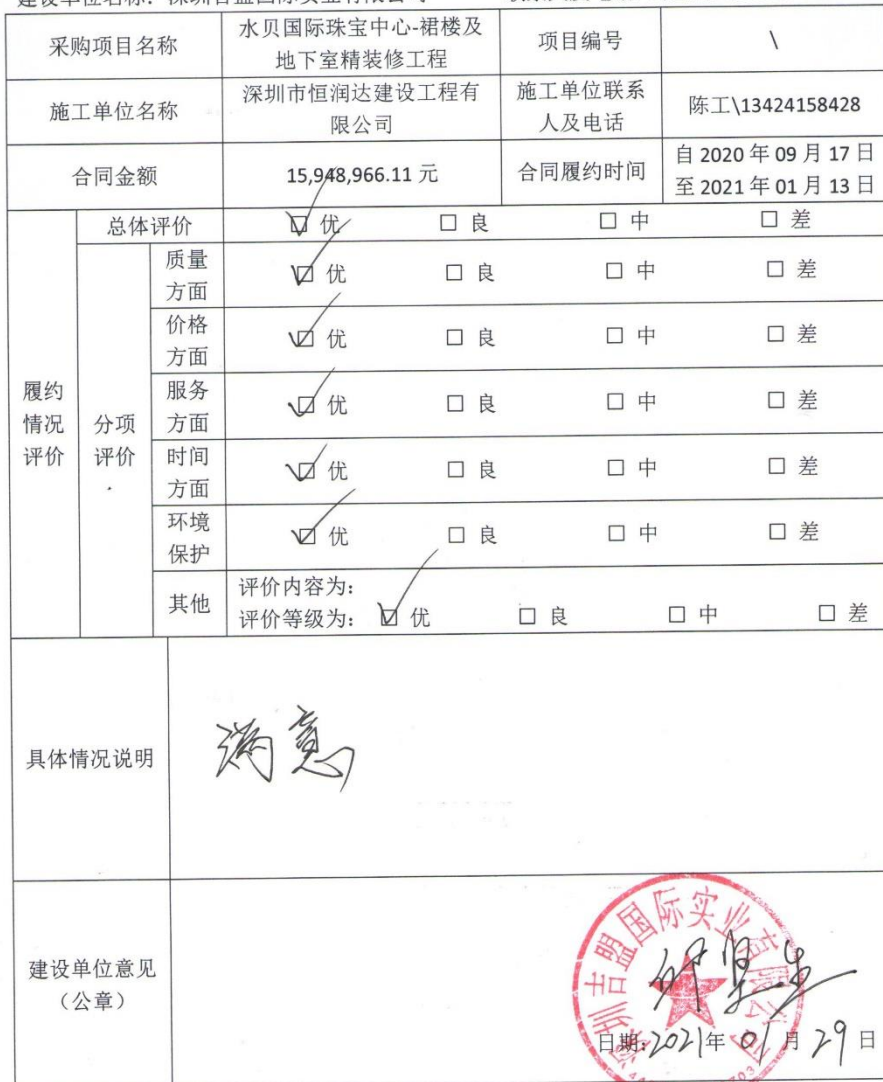 建设单位名称：深圳吉盟国际实业有限公司
采购项目名称
水贝国际珠宝中心-裙楼及
地下室精装修工程
项目编号
\
施工单位名称
深圳市恒润达建设工程有
限公司
施工单位联系
人及电话
陈工\13424158428
合同金额
15,948,966.11 元
合同履约时间
自 2020 年 09 月 17 日
至 2021 年 01 月 13 日
履约
情况
评价
总体评价
☑ 优 □ 良 □ 中 □ 差
分项
评价
质量
方面
☑ 优 □ 良 □ 中 □ 差
价格
方面
☑ 优 □ 良 □ 中 □ 差
服务
方面
☑ 优 □ 良 □ 中 □ 差
时间
方面
☑ 优 □ 良 □ 中 □ 差
环境
保护
☑ 优 □ 良 □ 中 □ 差
其他
评价内容为：
评价等级为： ☑ 优 □ 良 □ 中 □ 差
具体情况说明
满意
建设单位意见
（公章）
深圳吉盟国际实业有限公司
日期:2021年 01 月 29 日